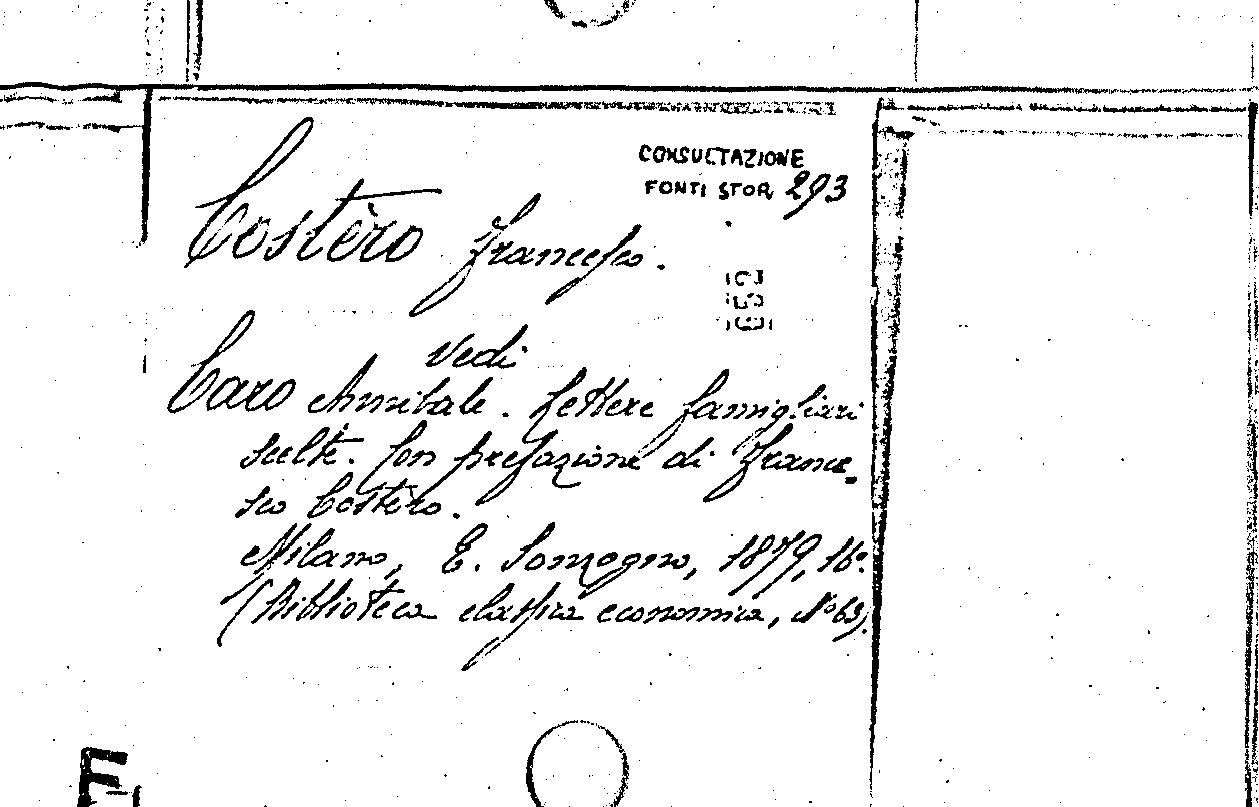 CONSULTAZIONE
FONTI STOR. 293
Costèro Francesco.
Vedi
Caro Annibale. Lettere famigliari
scelte. Con prefazione di France-
sco Costèro.
Milano, E. Sonzogno, 1879, 16º.
(Biblioteca classica economica, Nº 63).